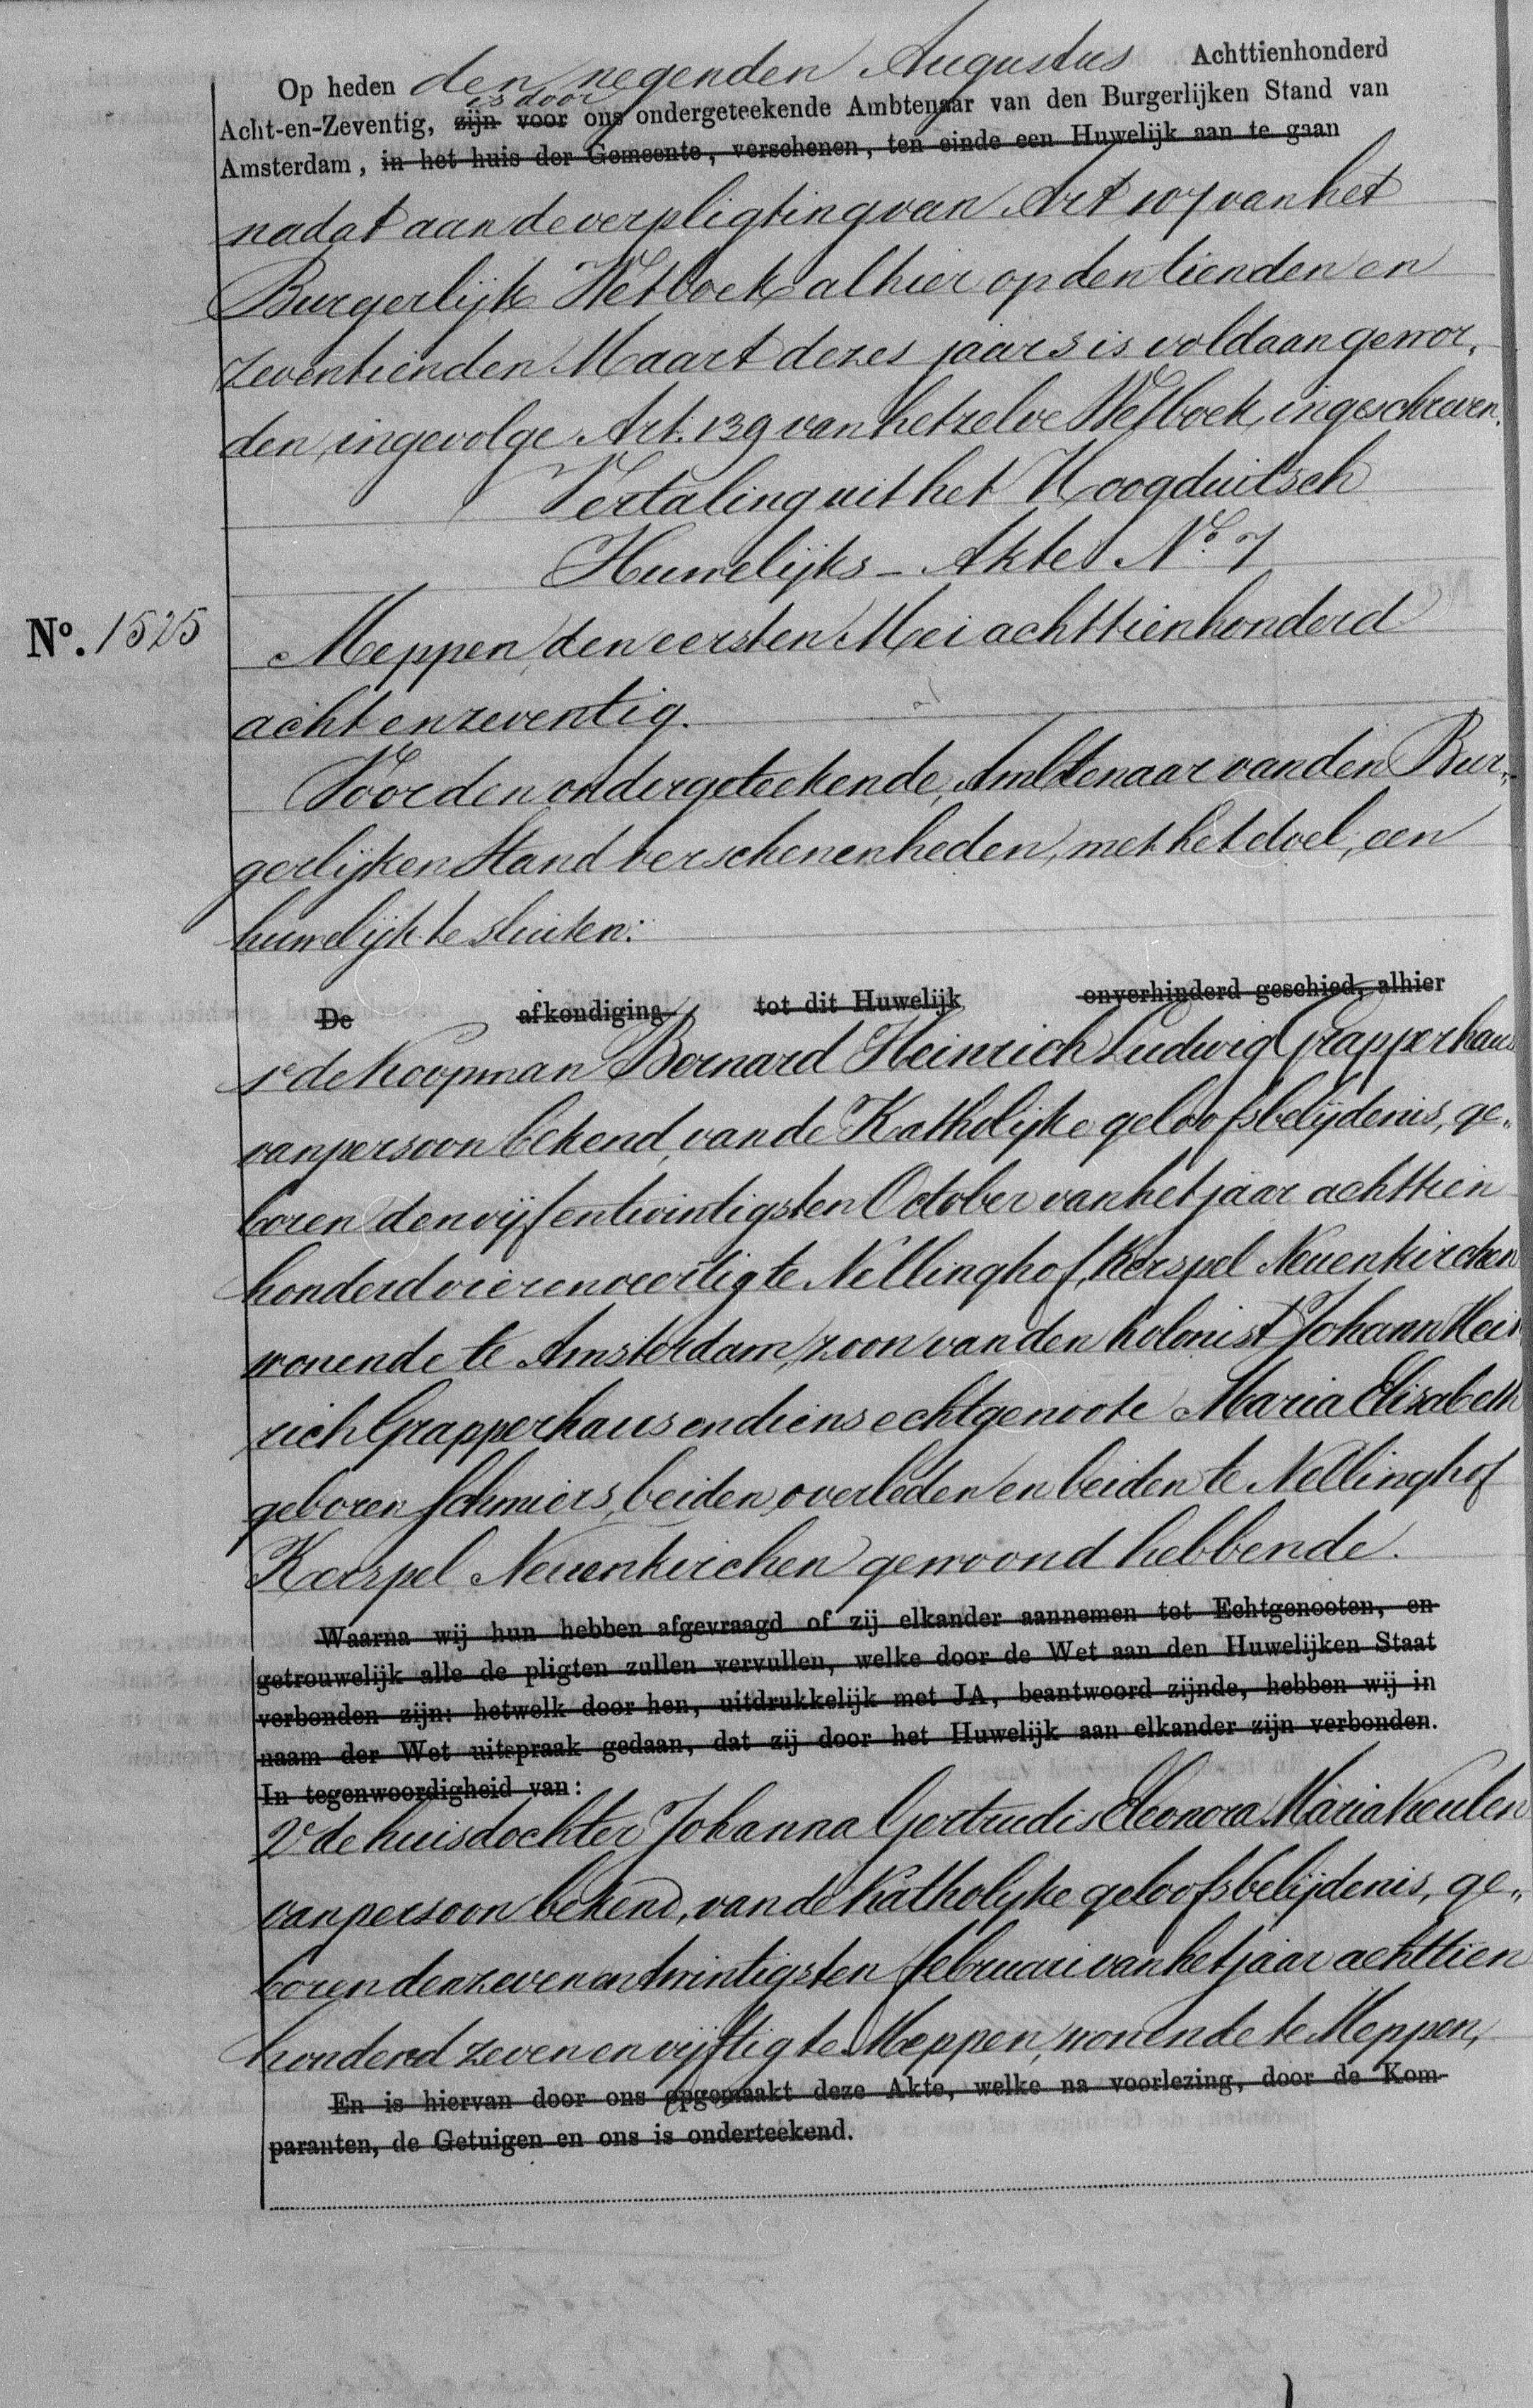 Op heden den negenden Augustus Achttienhonderd
is door
Acht-en-Zeventig, zijn voor ons ondergeteekende Ambtenaar van den Burgerlijken Stand van
Amsterdam, in het huis der Gemeente, verschenen, ten einde een Huwelijk aan te gaan
nadat aan de verpligting van Art 107 van het
Burgerlijk Wetboek alhier op den tienden en
zeventienden Maart dezes jaars is voldaan gewor„
den, ingevolge Art. 139 van hetzelve Wetboek, ingeschreven.
Vertaling uit het Hoogduitsch
Huwelijks - Akte No. 7
No. 1525
Meppen, den eersten Mei achttienhonderd
acht en zeventig.
Voor den ondergeteekende, Ambtenaar van den Bur„
gerlijken Stand verschenen heden, met het doel, een
huwelijk te sluiten:
De afkondiging tot dit Huwelijk onverhinderd geschied, alhier
1e de Koopman Bernard Heinrich Ludwig Grapperhaus
van persoon bekend, van de Katholijke geloofsbelijdenis, ge„
boren den vijf entwintigsten October van het jaar achttien
honderd vier en veertig te Nellinghof, Kerspel Neuenkirchen
wonende te Amsterdam, zoon van den kolonist Johann Hein
rich Grapperhaus en diens echtgenoote Maria Elisabeth
geboren Schmiers, beiden overleden en beiden te Nellinghof
Kerspel Neuenkirchen gewoond hebbende.
Waarna wij hun hebben afgevraagd of zij elkander aannemen tot Echtgenooten, en
getrouwelijk alle de pligten zullen vervullen, welke door de Wet aan den Huwelijken Staat
verbonden zijn: hetwelk door hen, uitdrukkelijk met JA, beantwoord zijnde, hebben wij in
naam der Wet uitspraak gedaan, dat zij door het Huwelijk aan elkander zijn verbonden.
In tegenwoordigheid van:
2e de huisdochter Johanna Gertrudis Eleonora Maria Keulen
van persoon bekend, van de Katholijke geloofsbelijdenis, ge„
boren den zeven en twintigsten februari van het jaar achttien
honderd zeven en vijftig te Meppen, wonende te Meppen,
En is hiervan door ons opgemaakt deze Akte, welke na voorlezing, door de Kom-
paranten, de Getuigen en ons is onderteekend.